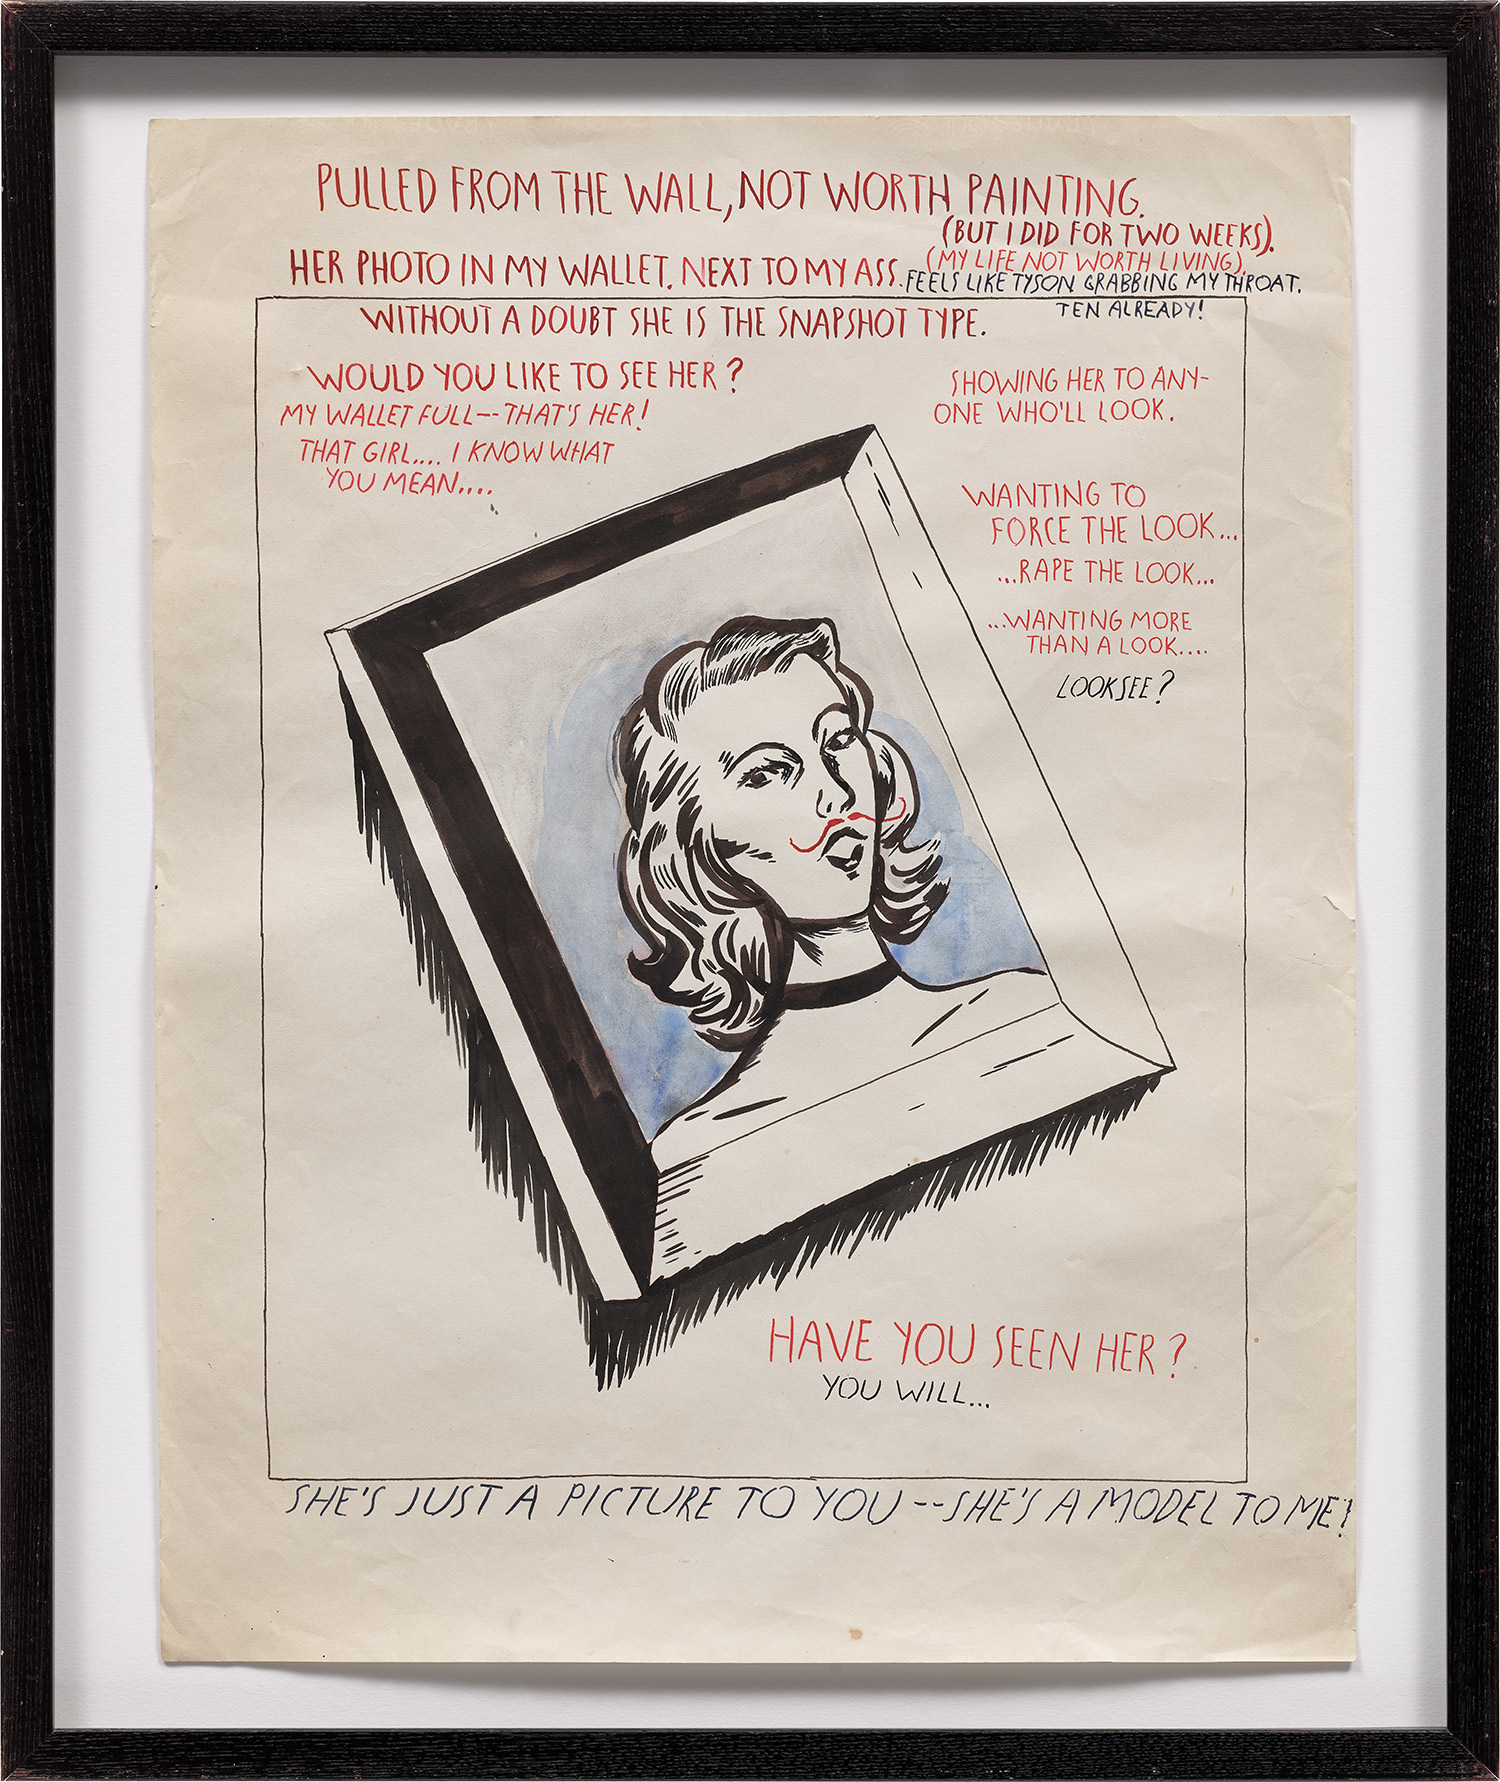 PULLED FROM THE WALL, NOT WORTH PAINTING.
(BUT I DID FOR TWO WEEKS).
HER PHOTO IN MY WALLET. NEXT TO MY ASS.
(MY LIFE NOT WORTH LIVING).
FEELS LIKE TYSON GRABBING MY THROAT.
TEN ALREADY!
WITHOUT A DOUBT SHE IS THE SNAPSHOT TYPE.
WOULD YOU LIKE TO SEE HER?
MY WALLET FULL--THAT'S HER!
THAT GIRL.... I KNOW WHAT
YOU MEAN....
SHOWING HER TO ANY-
ONE WHO'LL LOOK.
WANTING TO
FORCE THE LOOK...
...RAPE THE LOOK...
...WANTING MORE
THAN A LOOK....
LOOKSEE?
HAVE YOU SEEN HER?
YOU WILL...
SHE'S JUST A PICTURE TO YOU--SHE'S A MODEL TO ME!